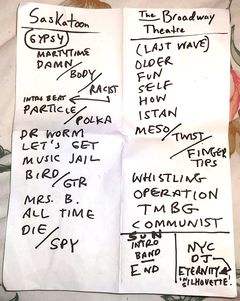 Saskatoon
(GYPSY)
MARTYTIME
DAMN/
BODY/
RACIST
INTRO BEAT
PARTICLE/
POLKA
DR WORM
LET'S GET
MUSIC JAIL
BIRD/
GTR
MRS. B.
ALL TIME
DIE/
SPY
The Broadway
Theatre
(LAST WAVE)
OLDER
FUN
SELF
HOW
ISTAN
MESO/
TWIST/
FINGER
TIPS
WHISTLING
OPERATION
TMBG
COMMUNIST
SUN
INTRO
BAND
END
NYC
DJ
ETERNITY
"SILHOUETTE"